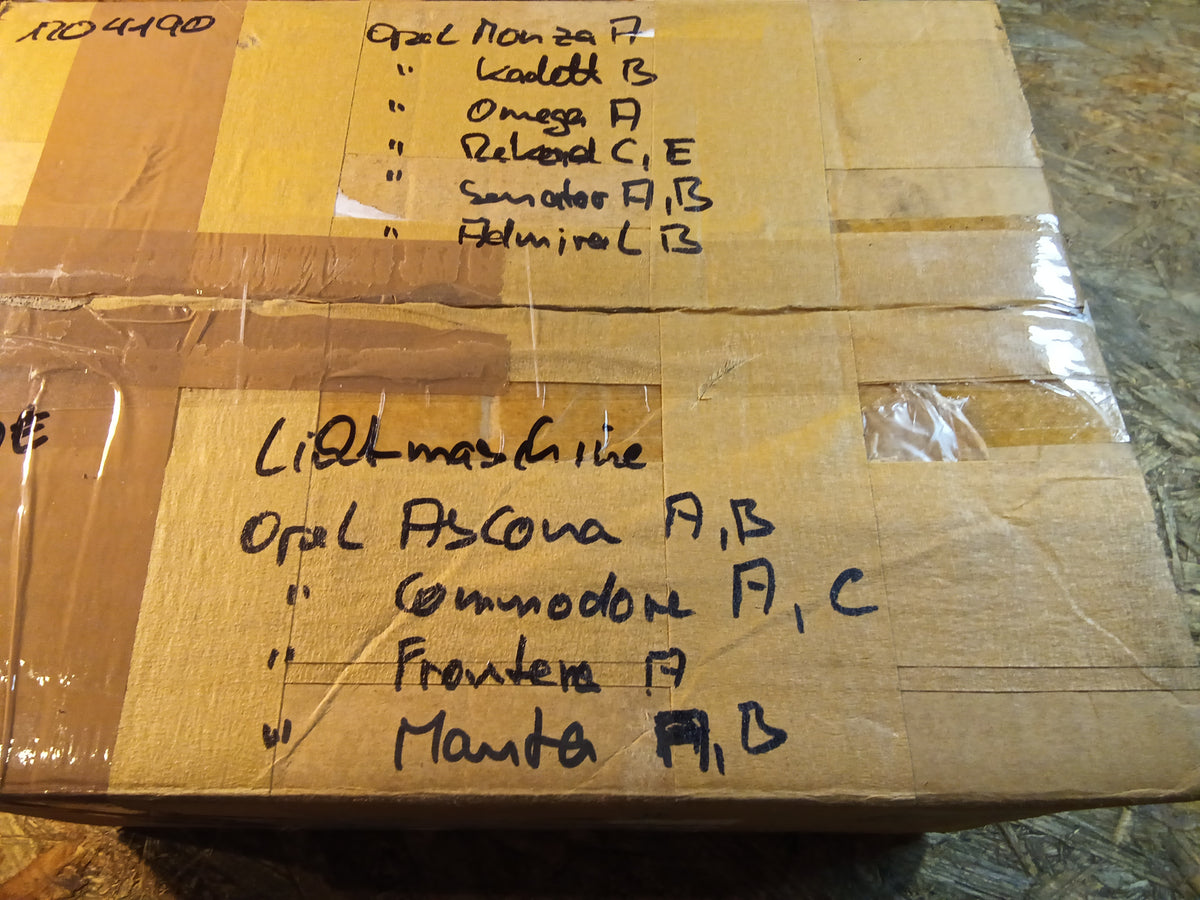 1204190
Opel Monza A
" Kadett B
" Omega A
" Rekord C, E
" Senator A, B
" Admiral B
Lichtmaschine
Opel Ascona A, B
" Commodore A, C
" Frontera A
" Manta A, B